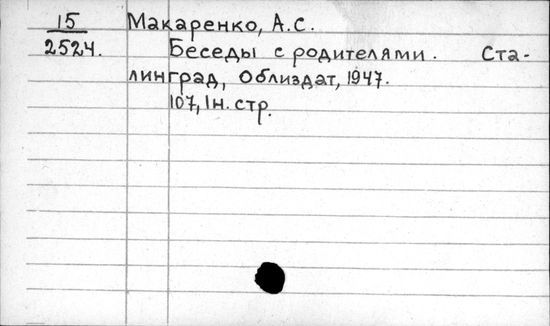 15 Макаренко, А.С.
2524. Беседы с родителями. Ста-
линград, Облиздат, 1947.
107, 1н. стр.